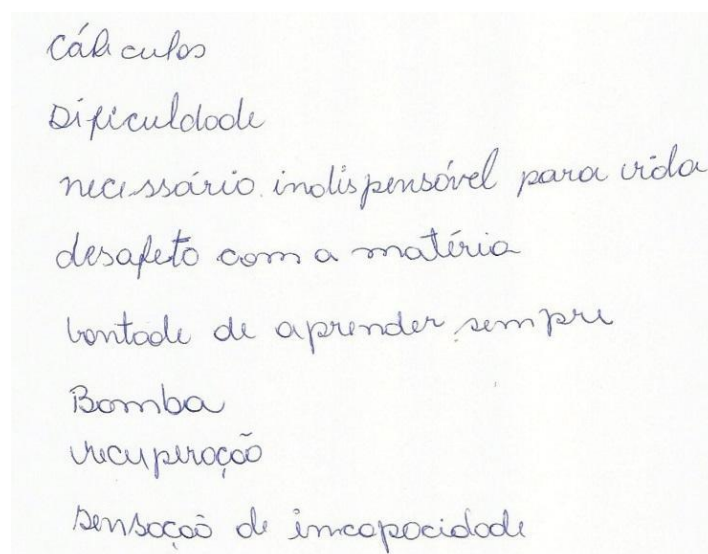 Cálculos
Dificuldade
necessário indispensável para vida
desafeto com a matéria
vontade de aprender sempre
Bomba
recuperação
sensação de incapacidade